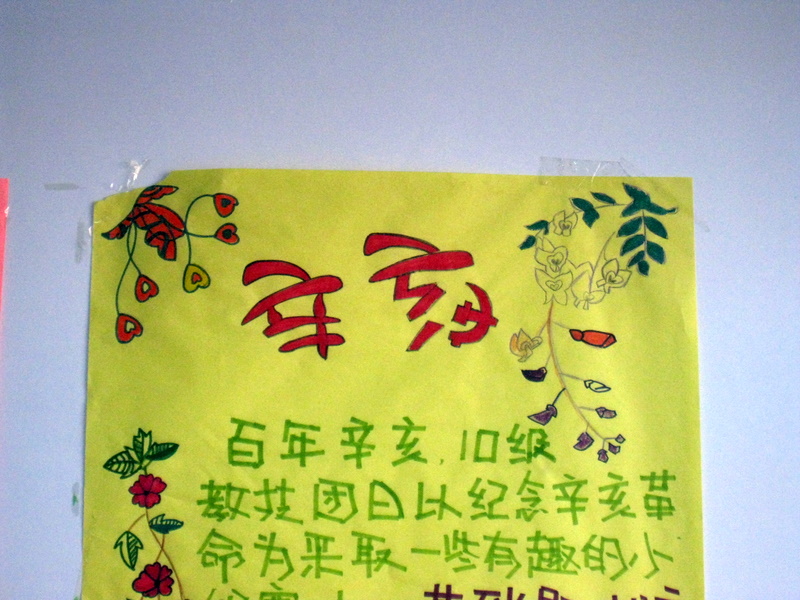 辛亥
百年辛亥,10级
教技团日以纪念辛亥革
命为采取一些有趣的小